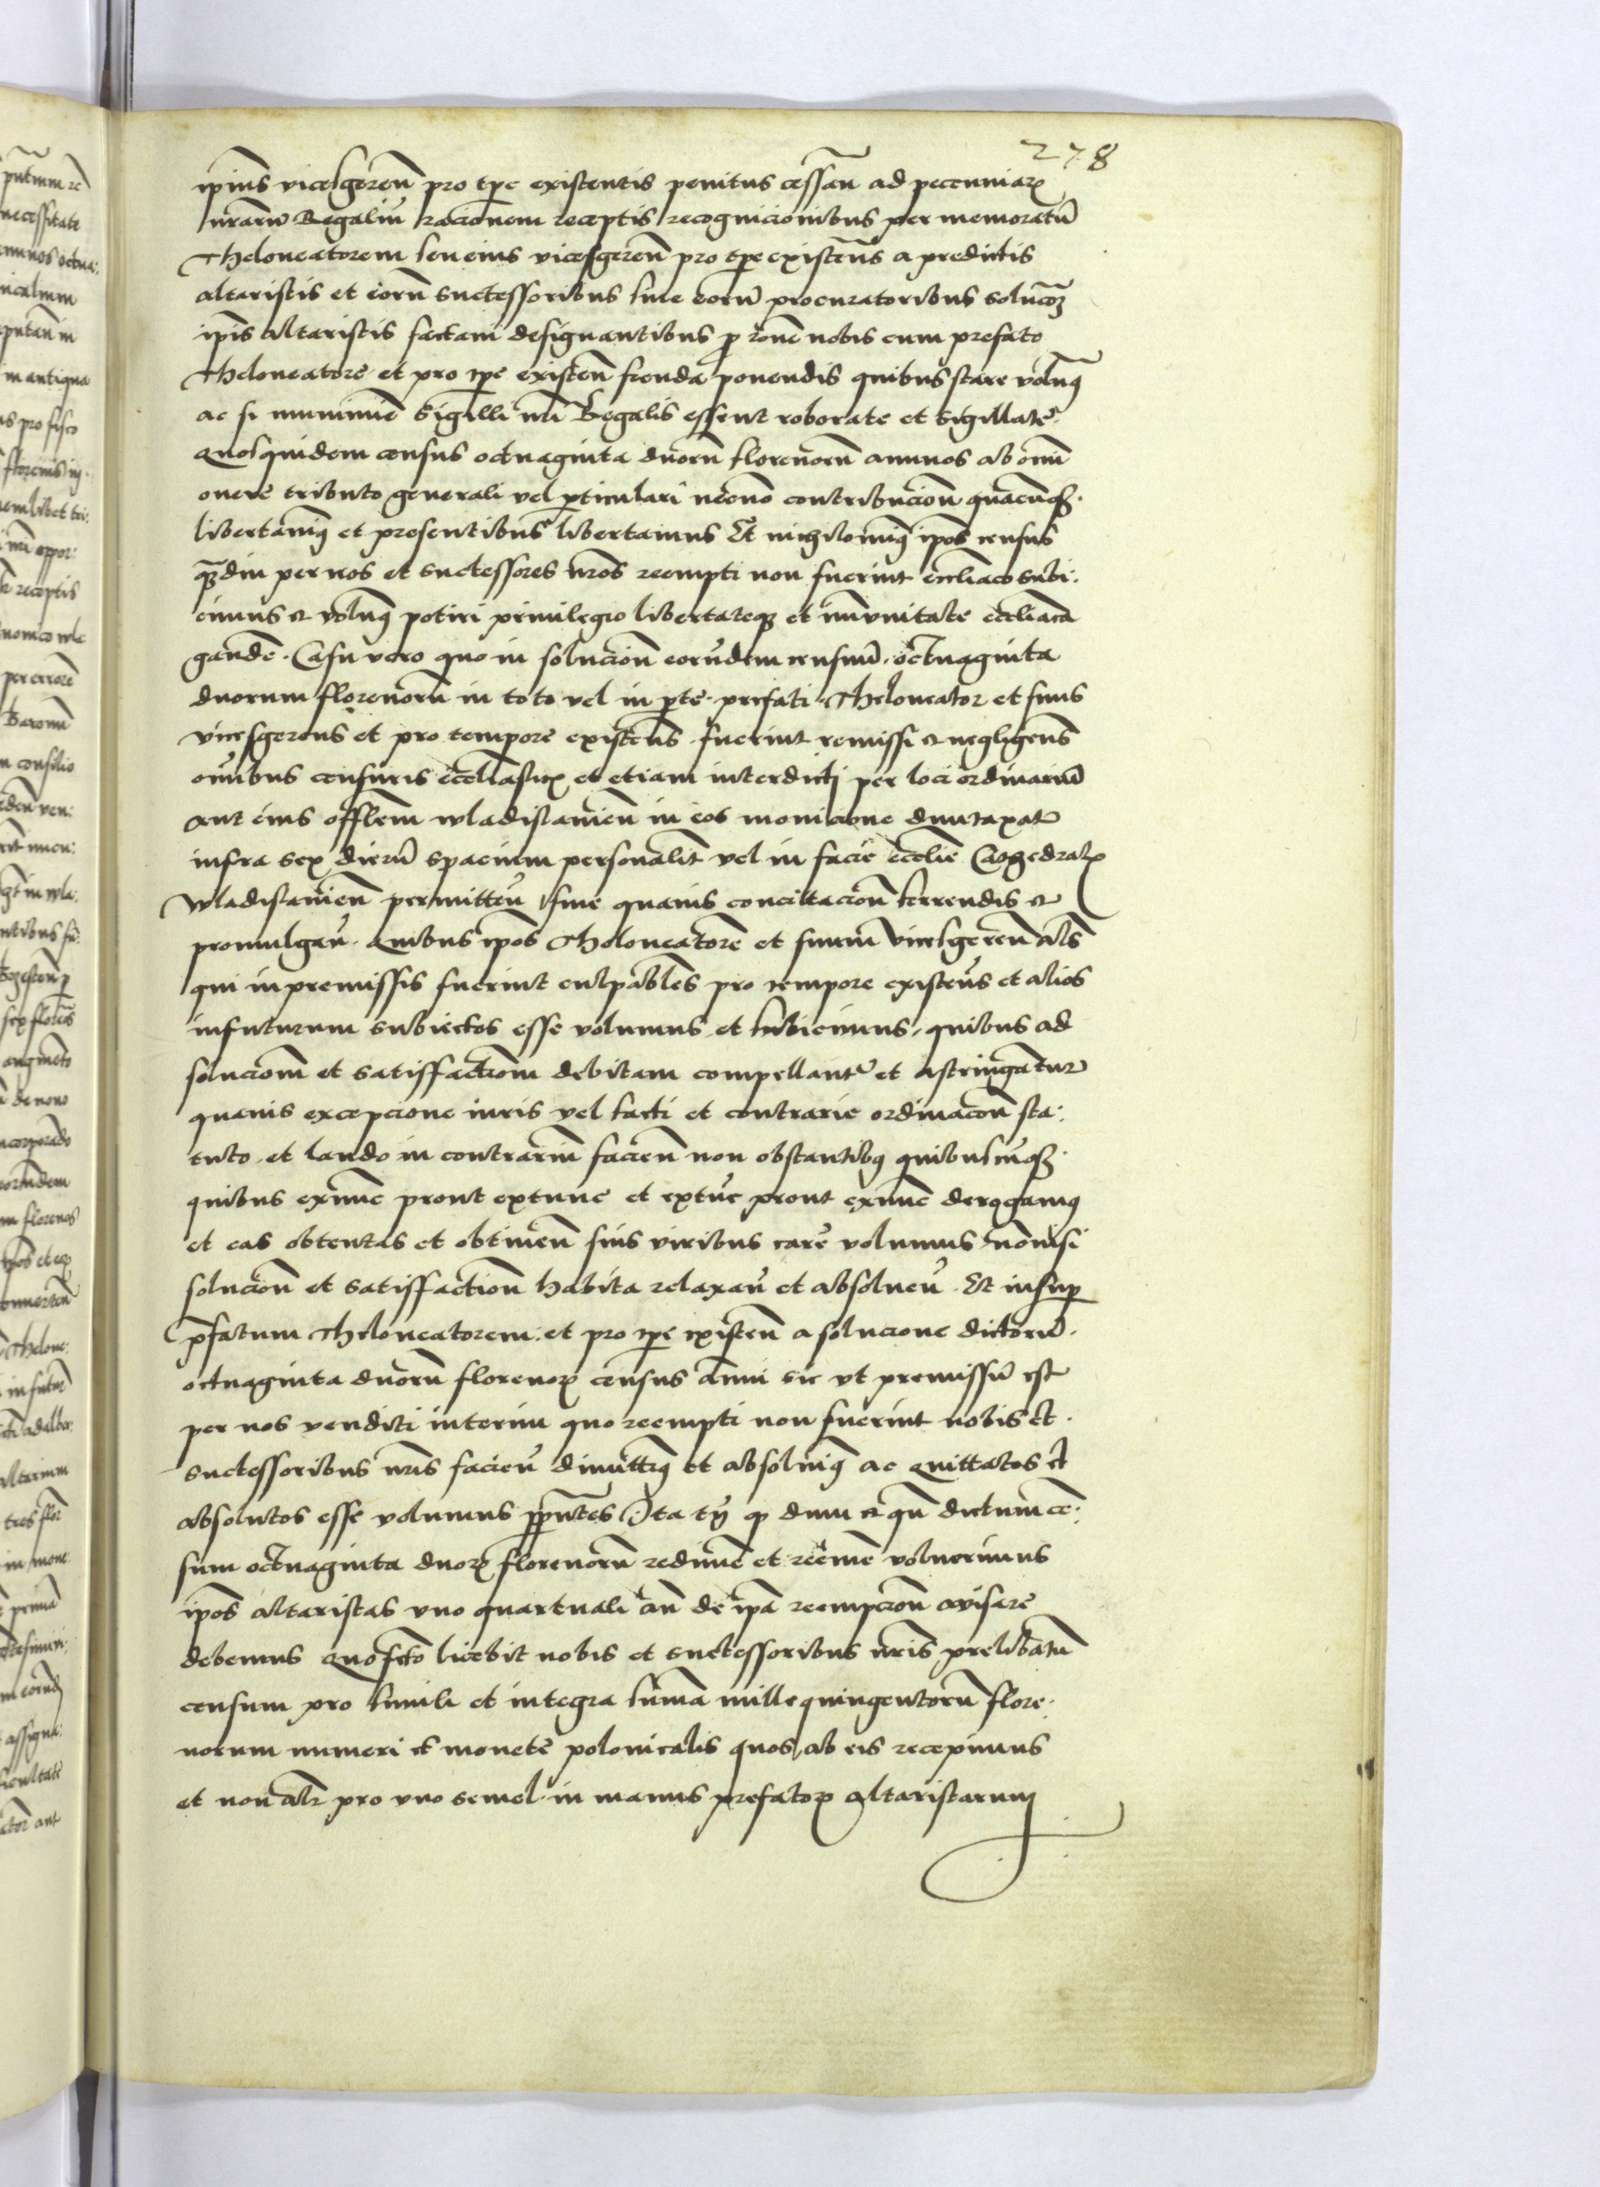 278
ipius vicesgeren pro tpe existentis penitus cessan ad pecuniar
nrarum Regaliu racionem receptis recognicionibus per memoratu
Theloneatorem seu eius vicesgeren pro tpe existens a predictis
altaristis et eorum successoribus siue eorum procuratoribus soluc
ipis altaristis factam designantibus p rone nobis cum prefato
Theloneatore et pro tpe existen fienda ponendis quibus stare volumq
ac si munimine Sigilli nri Regalis essent roborate et sigillate
Quosquidem census octuaginta duorum florenorum annuos ab omni
onere tributo generali vel pticulari necono contribucion quacunqz.
libertamq et presentibus libertamus Et nichilominq ipos census
quadiu per nos et successores nros reempti non fuerint eccliaco subi:
cimus et volumq potiri priuilegio libertateqz et immunitate eccliaca
gaude. Casu vero quo in solucion eorundem censuum octuaginta
duorum florenorum in toto vel in pte prefati Theloneator et suus
vicesgerens et pro tempore existens fuerint remissi et negligens
omibus censuris eccliasticis et etiam interdicti per loci ordinarium
aut eius offlem wladislauien in eos monicione dumtaxat
infra sex dierum spacium personalit vel in facie ecclie Cathedralis
wladislauien permitten siue quauis concitacion ferrendis et
promulgan. Quibus ipos Theloneatore et suum vicesgeren als
qui in premissis fuerint culpabiles pro tempore existens et alios
infuturum subiectos esse volumus et subicimus, quibus ad
solucionem et satisfactiom debitam compellantur et astringantur
quauis excepcione iuris vel facti et contrarie ordinacon sta:
tuto et laudo in contrarium facien non obstantibq quibuscunqz.
quibus exnunc prout extunc et extunc prout exnunc derogamq
et eas obtentas et obtinen suis viribus care volumus nonisi
solucion et satisfaction habita relaxan et absoluen. Et insup
pfatum Theloneatorem et pro tpe existen a solucione dictorum
octuaginta duorum florenor census annui sic vt premissum est
per nos venditi interim quo reempti non fuerint nobis et
successoribus nris facien dimittimq et absoluimq ac quittatos et
absolutos esse volumus pputes Ita tn q dum et qn dictum cen:
sum octuaginta duor florenorum redime et reeme voluerimus
ipos altaristas vno quartuali an de ipa reempcion auisare
debemus Quo fcto licebit nobis et successoribus nris prelibatum
censum pro simili et integra suma mille quingentorum flore:
norum numeri et monete polonicalis quos ab eis recepimus
et non alr pro vno semel in manus prefator altaristarum